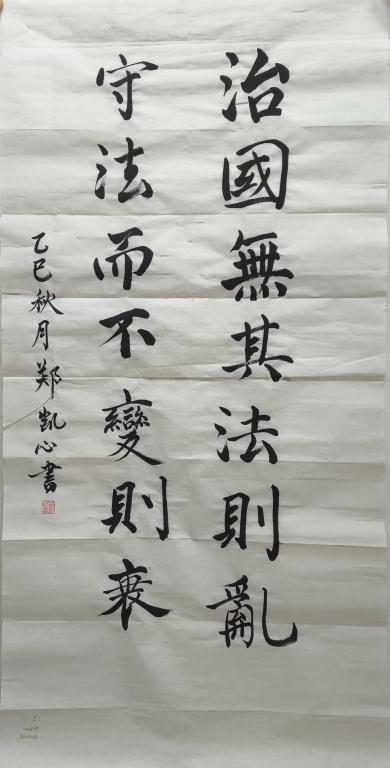 治國無其法則亂
守法而不變則衰
乙巳秋月郑凯心書